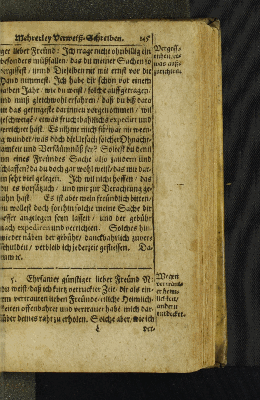 Mehrerley Verweiß-Schreiben. 145
lieber Freund: Ich trage nicht unbillig ein
besonders mißfallen, das du meiner Sachen so
vergissest, und Dieselben mit mit ernst vor die
Hand nimmest. Ich habe dir schon vor einem
halben Jahr, wie du weist, solche auffgetragen,
und muß gleichwohl erfahren, daß du biß dato
das geringste darinnen vorgenommen, will
geschweige, etwas fruchtbarliches expedirt und
verrichtet hast. Es nihme mich fürwar nit wenig
wunder, was doch die Ursach solcher
und Versäumnuß sey? Soltest du denn
eines Freundes Sache also saumen und
schlaffen, da du doch gar wohl weist, das mir dar-
an sehr viel gelegen. Ich will nicht hoffen, das
du es vorsätzlich, und mir zur Verachtung ge-
than hast. Es ist aber mein freundlich bitten,
du wollest doch forthin solche meine Sache dir
besser angelegen seyn lassen, und der gebühr
nach expediren und verrichten. Solches hin-
wieder umb dich der gebühr, danckbarlich zuver-
schulden, verbleib ich jederzeit geflissen. Da-
tum ꝛc.
Vergess-
enheit
was auff-
getragen.
5. Ehrsamer günstiger lieber Freund N:
du weist, daß ich kurtz verruckter Zeit, dir als ein-
em vertrauten lieben Freunde, etliche Heimlich-
keiten offenbahret und vertrauet habe, mich dar-
über deines raths zu erholen. Solche aber, wie ich
Wegen
vertraute-
er heim-
lichkeit,
ander
entdecket.
ver-